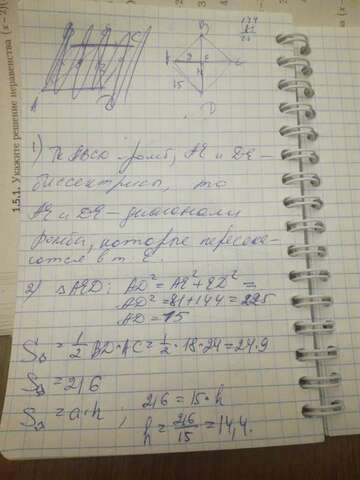 1.5.1. Укажите решение неравенства
B
C
A
D
144
81
15
1) Тк ABCD ромб, AE и DE –
биссектрисы, то
AE и DE – диагонали
ромба, которые пересека-
ются в т. E.
2) △AED; AD² = AE² + ED² =
AD² = 81 + 144 = 225
AD = 15
S = 1/2 BD · AC = 1/2 · 18 · 24 = 24 · 9
S = 216
S = a · h ; 216 = 15 · h
h = 216/15 = 14,4.